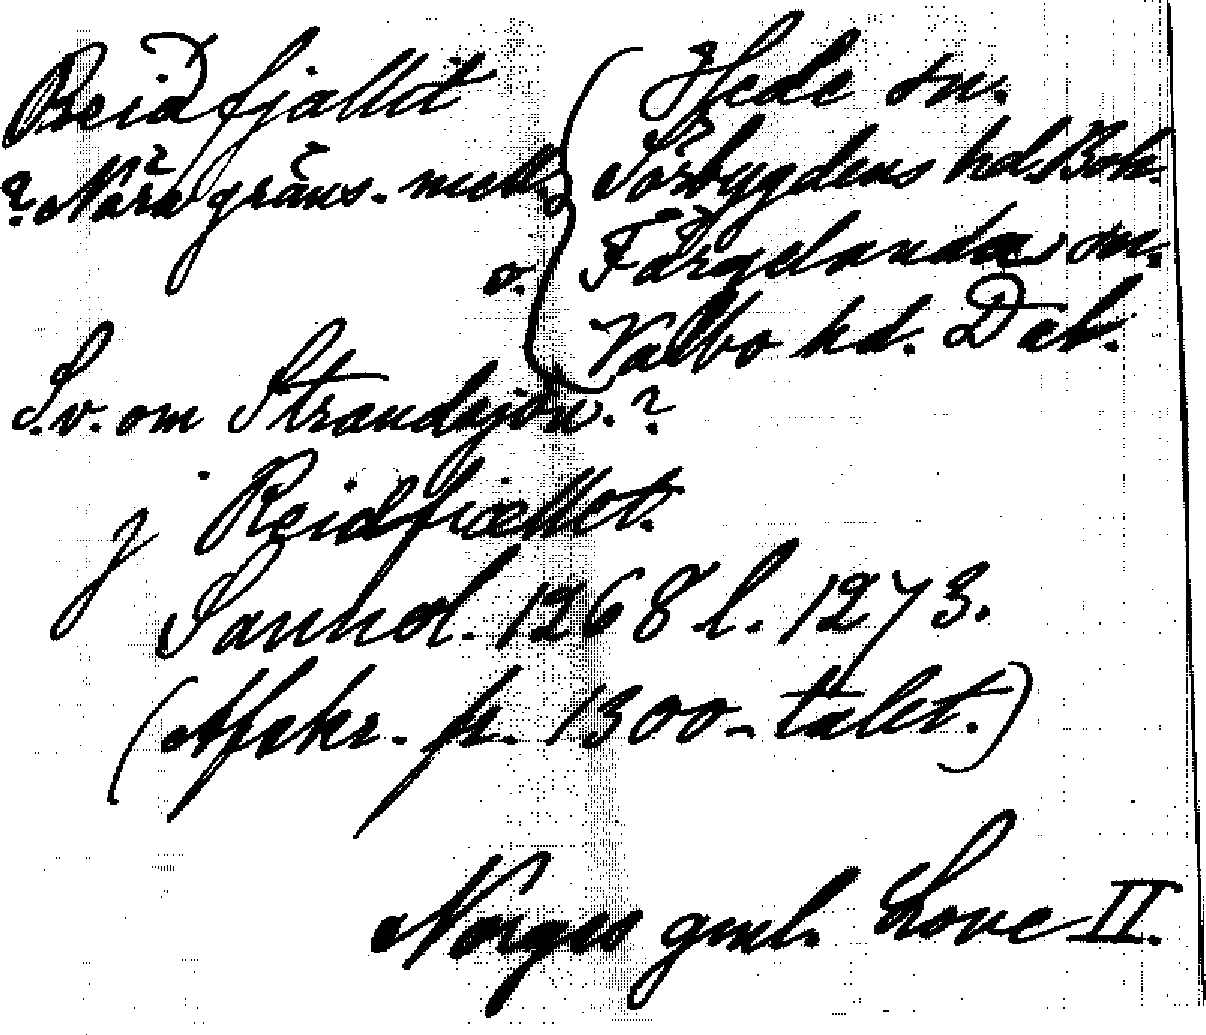 Reidfjallit
? Nära gräns. mell.
Hede sn.
Sörbygdens hd. Boh.
o.
Färgelanda sn.
Valbo hd. Dal.
S.v. om Strandsjön.?
j Reidfiællet.
Sanhol. 1268 l. 1273.
(Afskr. fr. 1300-talet.)
Norges gml. Love II.